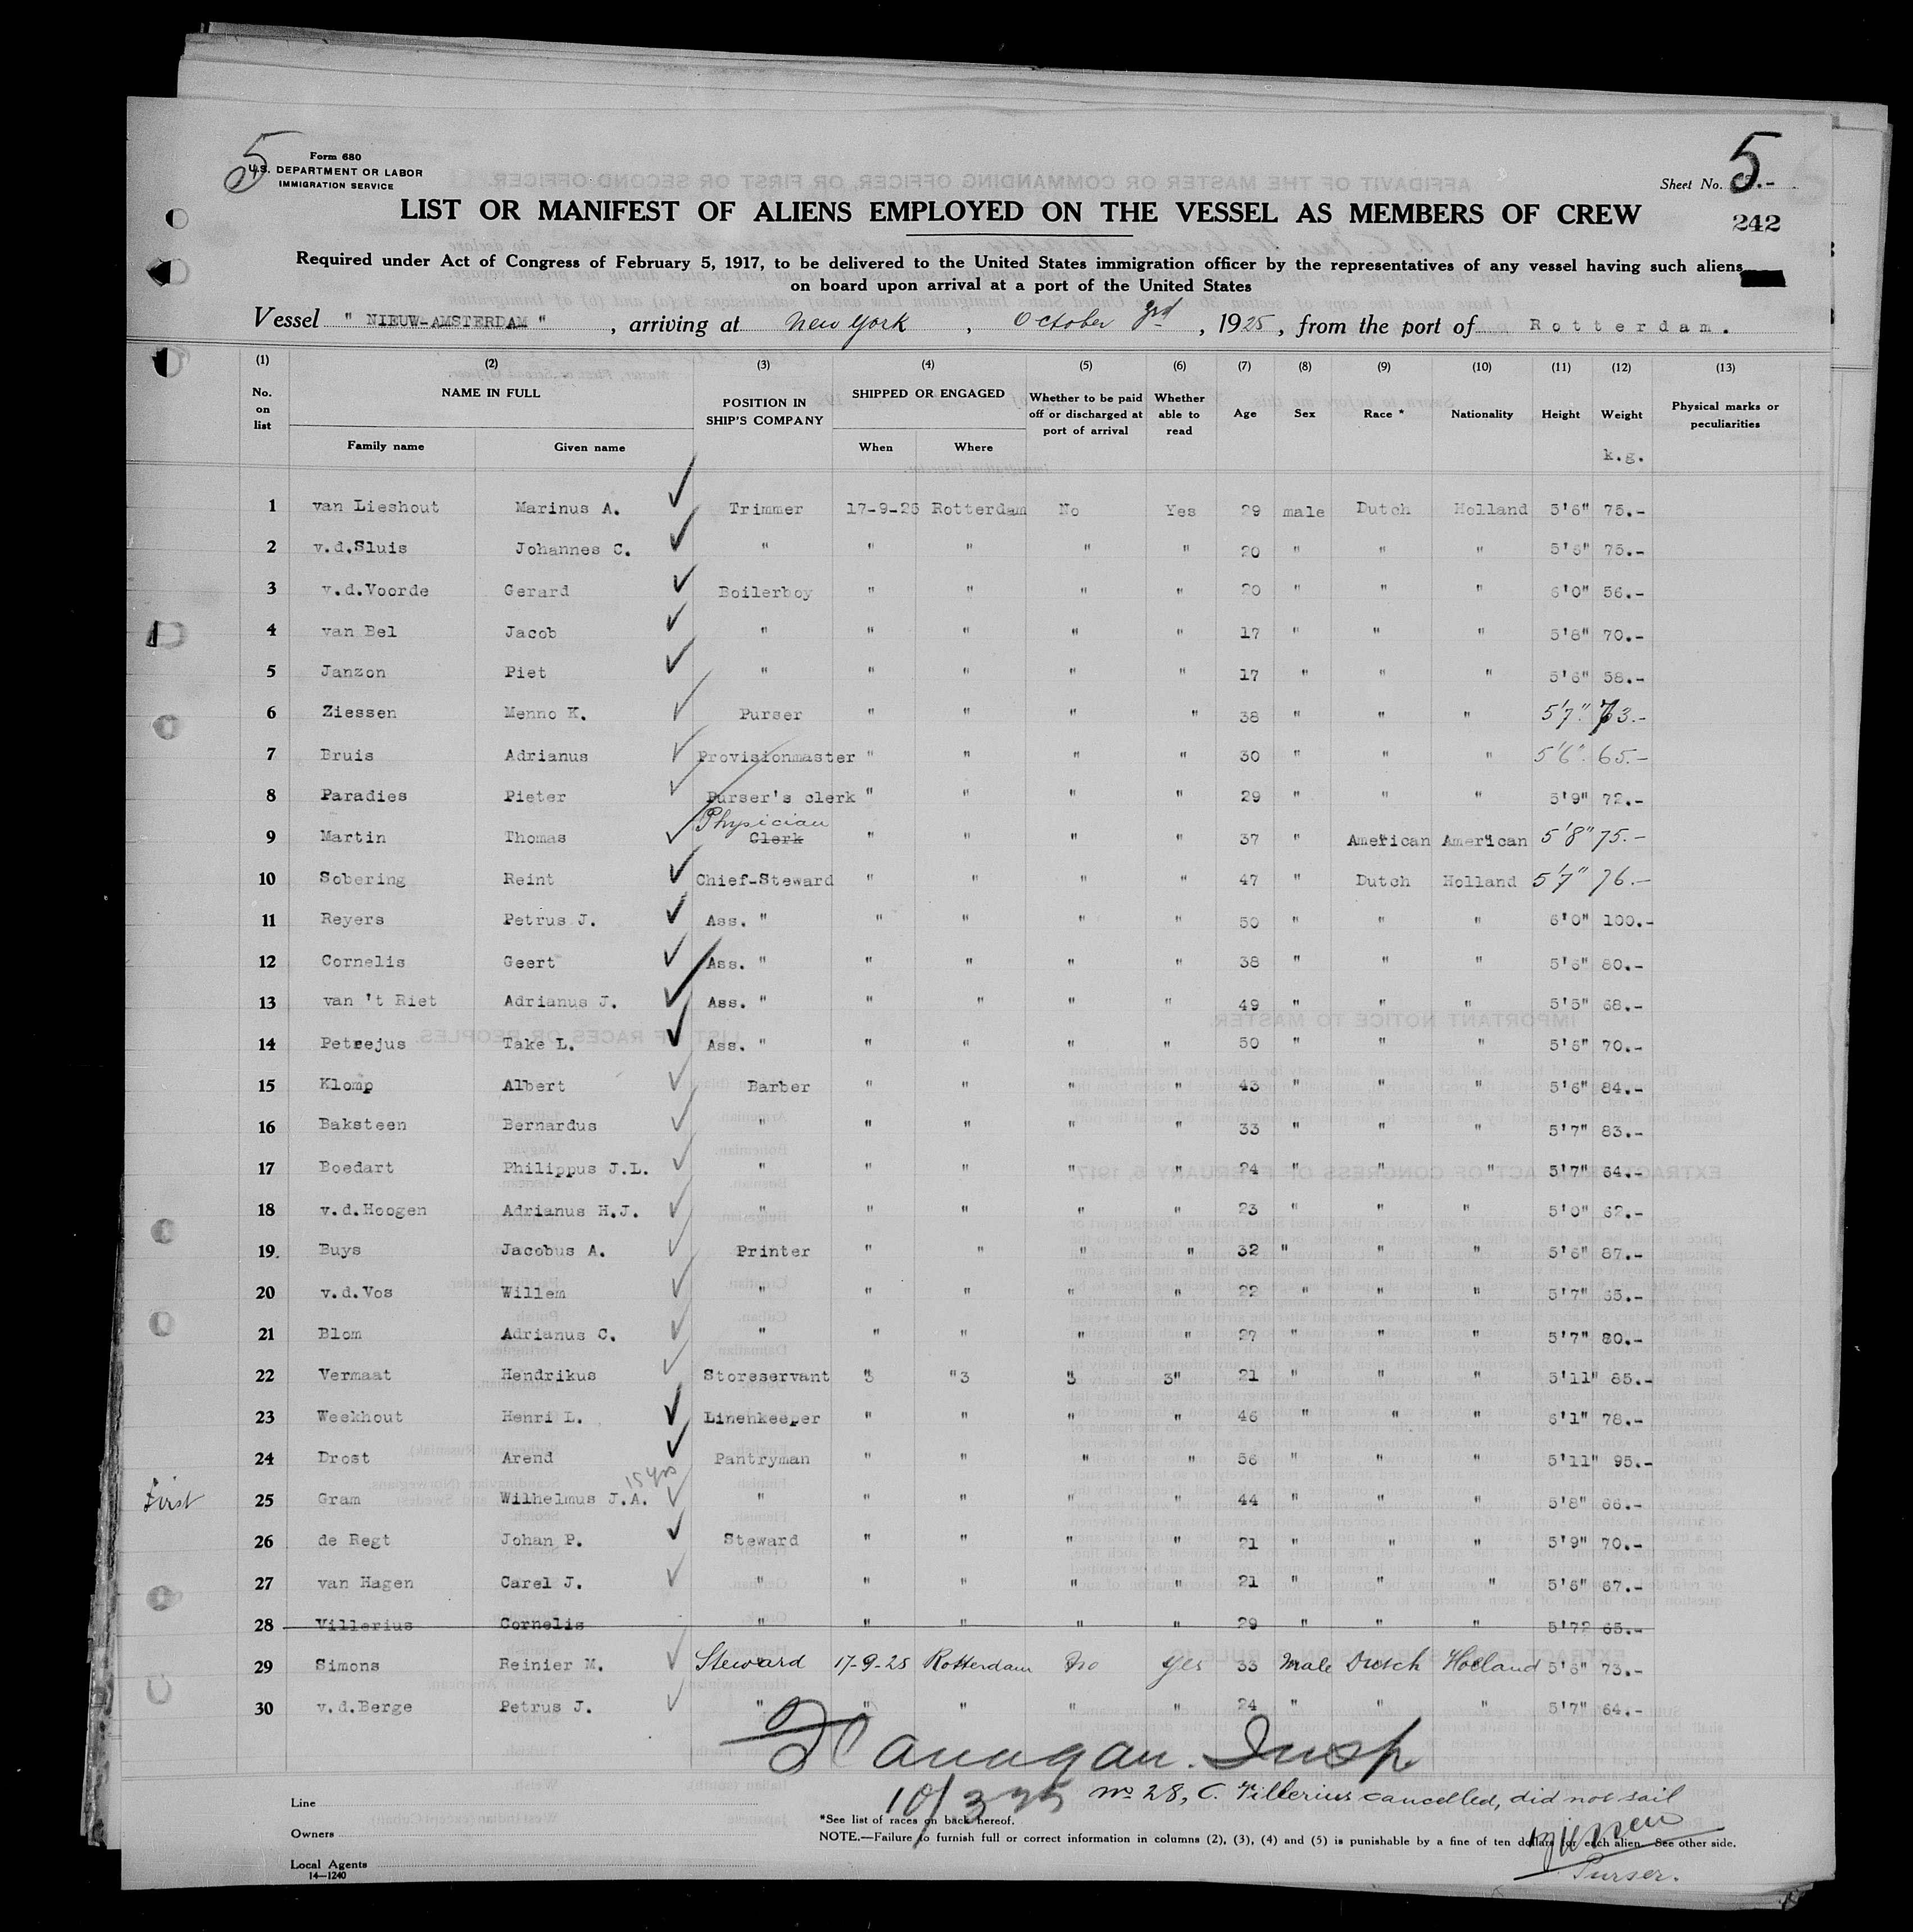 5
Form 680
U.S. DEPARTMENT OR LABOR
IMMIGRATION SERVICE
Sheet No. 5.-
242
LIST OR MANIFEST OF ALIENS EMPLOYED ON THE VESSEL AS MEMBERS OF CREW
Required under Act of Congress of February 5, 1917, to be delivered to the United States immigration officer by the representatives of any vessel having such aliens
on board upon arrival at a port of the United States
Vessel " NIEUW-AMSTERDAM " , arriving at New York , October 3rd , 1925 , from the port of Rotterdam.
(1) (2) (3) (4) (5) (6) (7) (8) (9) (10) (11) (12) (13)
No. on list NAME IN FULL POSITION IN SHIP'S COMPANY SHIPPED OR ENGAGED Whether to be paid off or discharged at port of arrival Whether able to read Age Sex Race * Nationality Height Weight Physical marks or peculiarities
Family name Given name When Where k.g.
1 van Lieshout Marinus A. Trimmer 17-9-25 Rotterdam No Yes 29 male Dutch Holland 5'6" 75.-
2 v.d.Sluis Johannes C. " " " " " 20 " " " 5'6" 75.-
3 v.d.Voorde Gerard Boilerboy " " " " 20 " " " 6'0" 56.-
4 van Bel Jacob " " " " " 17 " " " 5'8" 70.-
5 Janzon Piet " " " " " 17 " " " 5'6" 58.-
6 Ziessen Menno K. Purser " " " " 38 " " " 5'7" 73.-
7 Bruis Adrianus Provisionmaster " " " " 30 " " " 5'6" 65.-
8 Paradies Pieter Purser's clerk " " " " 29 " " " 5'9" 72.-
Physician
9 Martin Thomas Clerk " " " " 37 " American American 5'8" 75.-
10 Sobering Reint Chief-Steward " " " " 47 " Dutch Holland 5'7" 76.-
11 Reyers Petrus J. Ass. " " " " " 50 " " " 6'0" 100.-
12 Cornelis Geert Ass. " " " " " 38 " " " 5'6" 80.-
13 van 't Riet Adrianus J. Ass. " " " " " 49 " " " 5'5" 68.-
14 Petrejus Take L. Ass. " " " " " 50 " " " 5'6" 70.-
15 Klomp Albert Barber " " " " 43 " " " 5'6" 84.-
16 Baksteen Bernardus " " " " " 33 " " " 5'7" 83.-
17 Boedart Philippus J.L. " " " " " 24 " " " 5'7" 64.-
18 v.d.Hoogen Adrianus H.J. " " " " " 23 " " " 5'0" 62.-
19. Buys Jacobus A. Printer " " " " 32 " " " 5'6" 87.-
20 v.d.Vos Willem " " " " " 22 " " " 5'7" 65.-
21 Blom Adrianus C. " " " " " 27 " " " 5'7" 80.-
22 Vermaat Hendrikus Storeservant " "3 " 3" 21 " " " 5'11" 85.-
23 Weekhout Henri L. Linenkeeper " " " " 46 " " " 6'1" 78.-
24 Drost Arend Pantryman " " " " 56 " " " 5'11" 95.-
15 yrs
First 25 Gram Wilhelmus J.A. " " " " " 44 " " " 5'8" 66.-
26 de Regt Johan P. Steward " " " " 21 " " " 5'9" 70.-
27 van Hagen Carel J. " " " " " 21 " " " 5'6" 67.-
28 Villerius Cornelis " " " " " 29 " " " 5'7" 65.-
29 Simons Reinier M. Steward 17-9-25 Rotterdam No yes 33 Male Dutch Holland 5'6" 73.-
30 v.d.Berge Petrus J. " " " " " 24 " " " 5'7" 64.-
Flanagan. Insp
10/3/25
No 28, C. Villerius cancelled, did not sail
Ziessen
Purser.
Line
Owners
Local Agents
14—1240
*See list of races on back hereof.
NOTE.—Failure to furnish full or correct information in columns (2), (3), (4) and (5) is punishable by a fine of ten dollars for each alien. See other side.